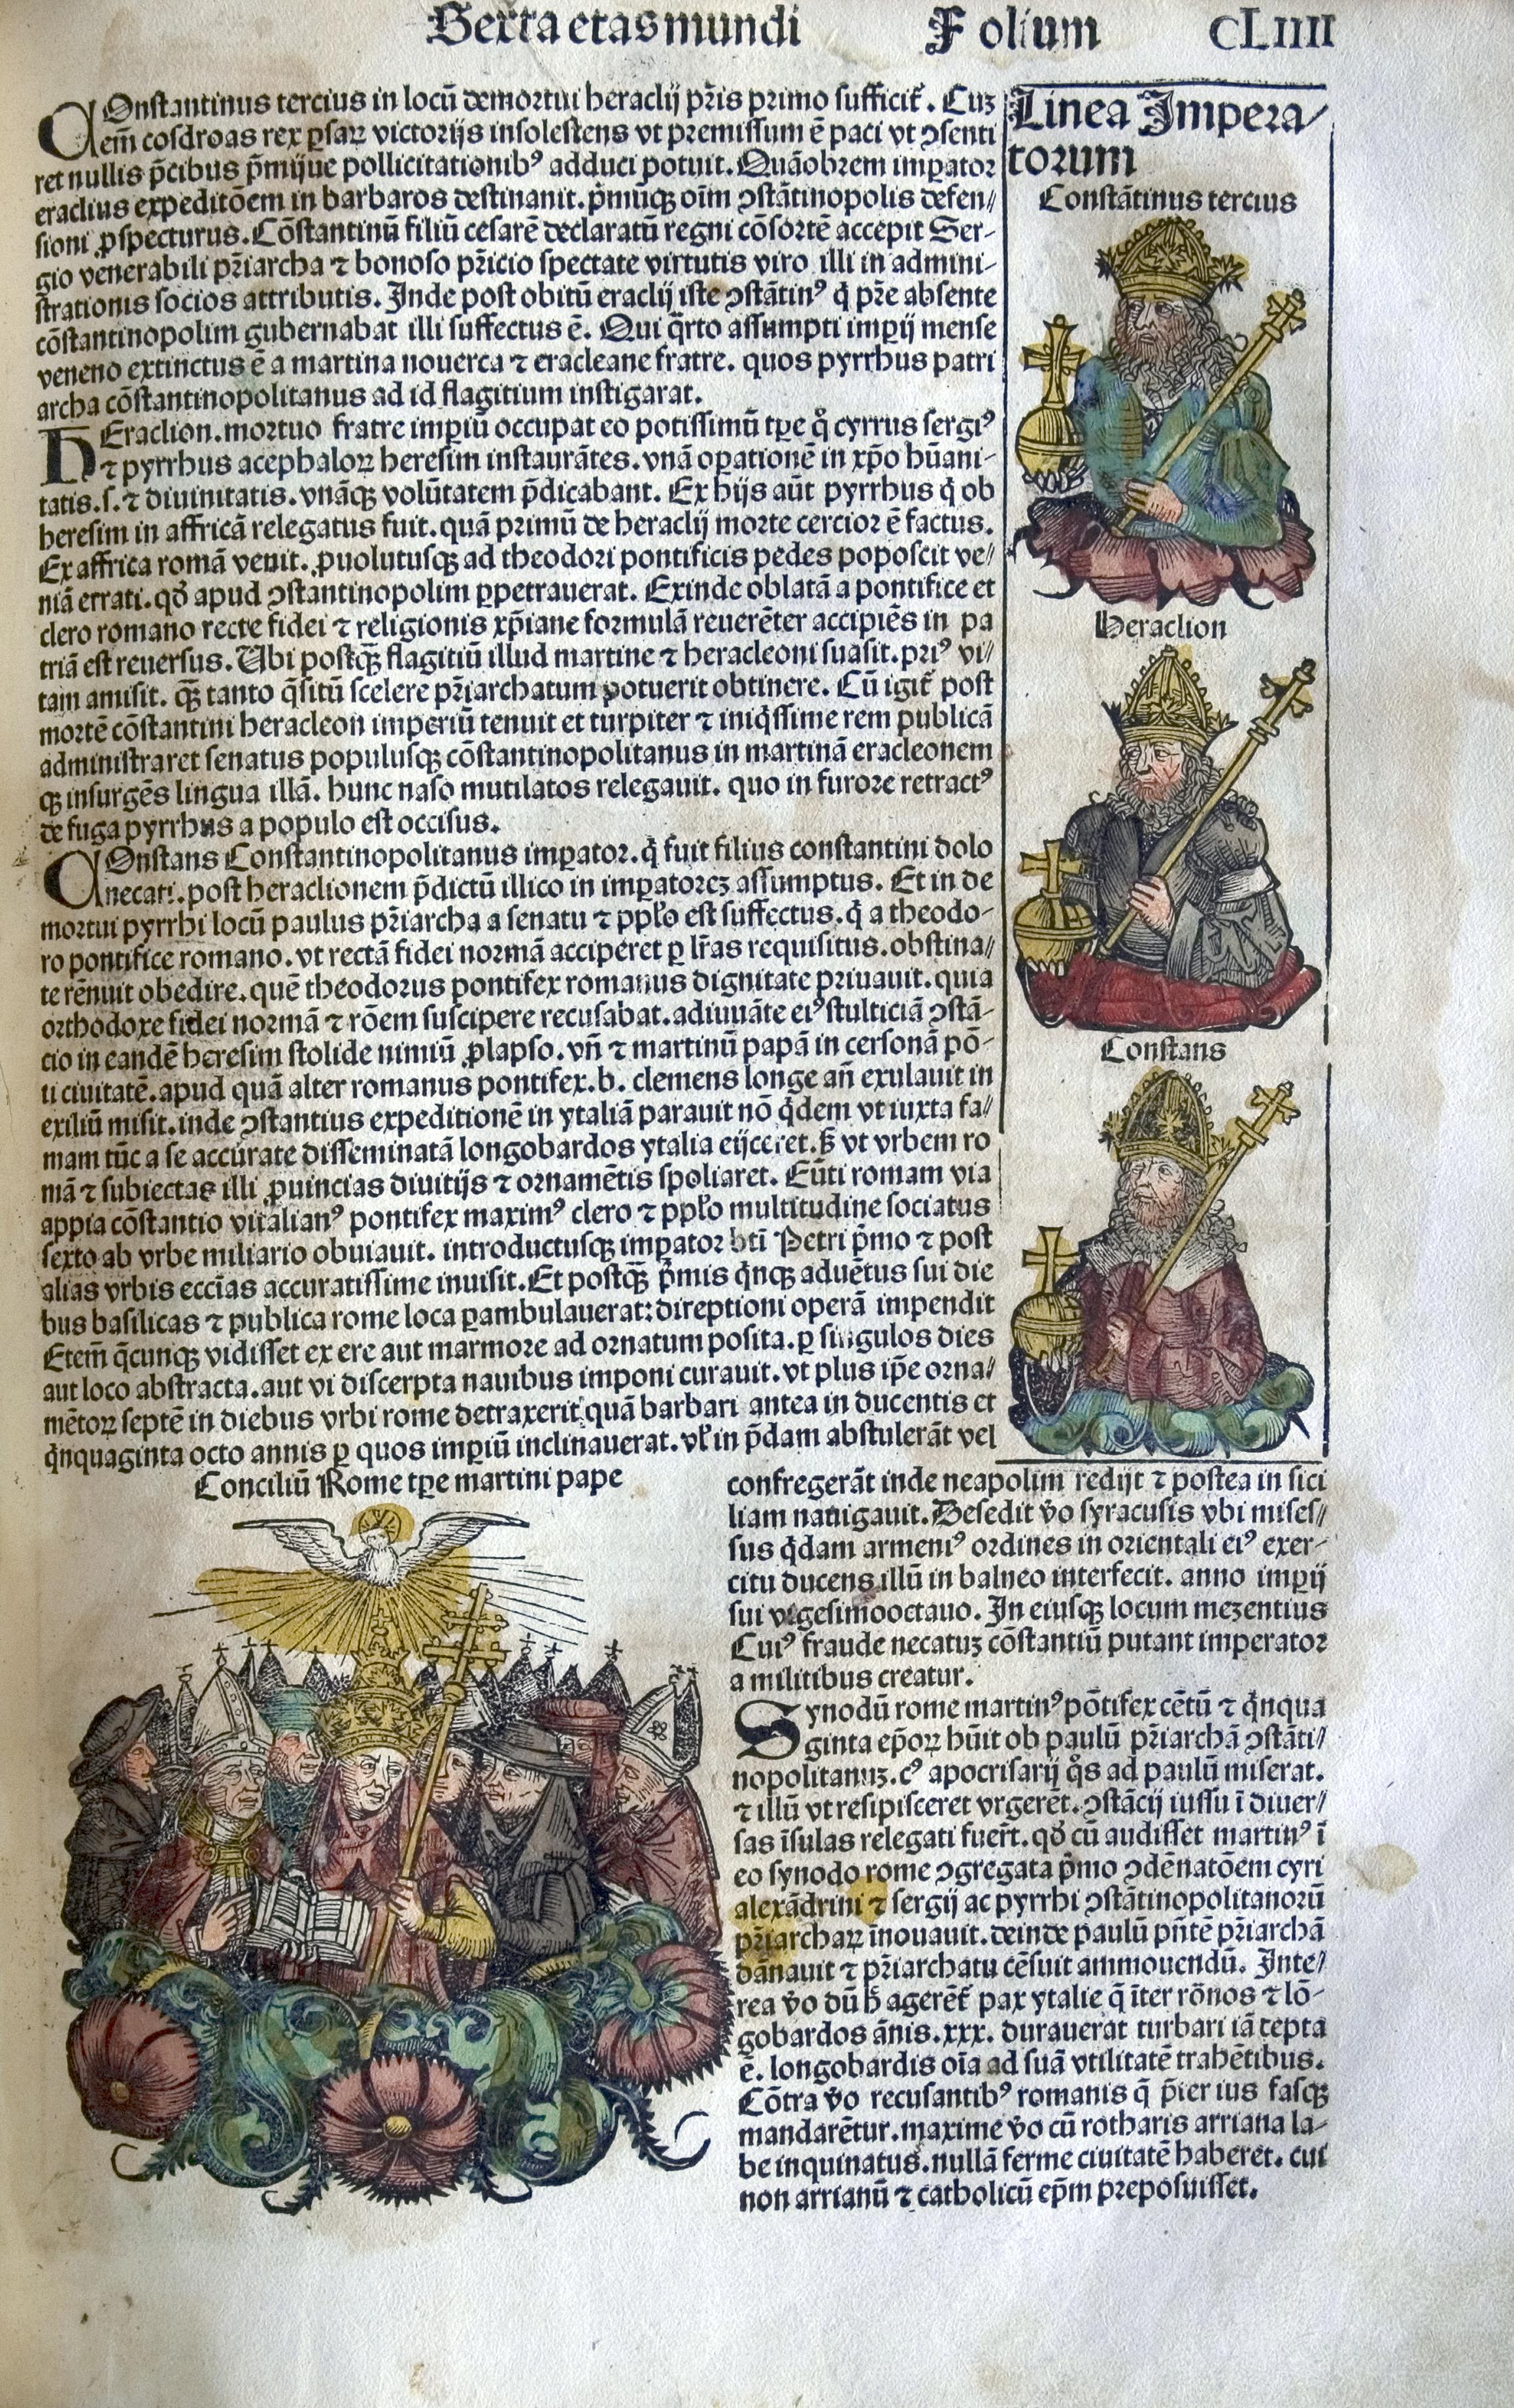 Sexta etas mundi Folium CLIIII
COnstantinus tercius in locū demortui heraclij pr̄is primo sufficit᷒. Cuʒ
em̄ cosdroas rex ꝑsaꝝ victorijs insolescens vt premissum ē paci vt ꝯsenti
ret nullis p̄cibus p̄mijsue pollicitationibꝰ adduci potuit. Quāobrem imꝑator
eraclius expeditōem in barbaros destinauit. p̄mūqꝫ oīm ꝯstātinopolis defen⸗
sioni ꝓspecturus. Cōstantinū filiū cesarē declaratū regni cōsortē accepit Ser⸗
gio venerabili pr̄iarcha ⁊ bonoso pr̄icio spectate virtutis viro illi in admini⸗
strationis socios attributis. Inde post obitū eraclij iste ꝯstātinꝰ q̇ pr̄e absente
cōstantinopolim gubernabat illi suffectus ē. Qui q̄rto assumpti imꝑij mense
veneno extinctus ē a martina nouerca ⁊ eracleane fratre. quos pyrrhus patri
archa cōstantinopolitanus ad id flagitium instigarat.
HEraclion. mortuo fratre imꝑiū occupat eo potissimū tꝑe q̊ cyrrus sergiꝰ
⁊ pyrrhus acephaloꝝ heresim instaurātes. vnā oꝑationē in xp̄o hūani⸗
tatis. s. ⁊ diuinitatis. vnāqꝫ volūtatem p̄dicabant. Ex hijs aūt pyrrhus q̇ ob
heresim in affricā relegatus fuit. quā primū de heraclij morte cercior ē factus.
Ex affrica romā venit. ꝓuolutusqꝫ ad theodori pontificis pedes poposcit ve⸗
niā errati. qd̛ apud ꝯstantinopolim ꝑpetrauerat. Exinde oblatā a pontifice et
clero romano recte fidei ⁊ religionis xp̄iane formulā reuerēter accipiēs in pa
triā est reuersus. Ubi postqꝫ̄ flagitiū illud martine ⁊ heracleoni suasit. priꝰ vi⸗
tam amisit. qꝫ̄ tanto q̄situ scelere pr̄iarchatum potuerit obtinere. Cū igit᷒ post
mortē cōstantini heracleon imperiū tenuit et turpiter ⁊ iniq̇ssime rem publicā
administraret senatus populusqꝫ cōstantinopolitanus in martinā eracleonem
qꝫ insurgēs lingua illā. hunc naso mutilatos relegauit. quo in furore retractꝰ
de fuga pyrrhus a populo est occisus.
COnstans Constantinopolitanus imꝑator. q̇ fuit filius constantini dolo
necati. post heraclionem p̄dictū illico in imꝑatoreʒ assumptus. Et in de
mortui pyrrhi locū paulus pr̄iarcha a senatu ⁊ pplo̅ est suffectus. q̇ a theodo⸗
ro pontifice romano. vt rectā fidei normā acciperet ꝑ lr̄as requisitus. obstina⸗
te rēnuit obedire. quē theodorus pontifex romanus dignitate priuauit. quia
orthodoxe fidei normā ⁊ rōem suscipere recusabat. adiuuāte eiꝰ stulticiā ꝯstā⸗
cio in eandē heresim stolide nimiū ꝓlapso. vn̄ ⁊ martinū papā in cersonā pō⸗
ti ciuitatē. apud quā alter romanus pontifex. b. clemens longe an̄ exulauit in
exiliū misit. inde ꝯstantius expeditionē in ytaliā parauit nō q̇dem vt iuxta fa⸗
mam tūc a se accurate disseminatā longobardos ytalia eijceret. sꝫ vt vrbem ro
mā ⁊ subiectas illi ꝓuincias diuitijs ⁊ ornamētis spoliaret. Eūti romam via
appia cōstantio vitalianꝰ pontifex maximꝰ clero ⁊ pplo̅ multitudine sociatus
sexto ab vrbe miliario obuiauit. introductusqꝫ imꝑator bti̅ Petri p̄mo ⁊ post
alias vrbis eccl̄ias accuratissime inuisit. Et postqꝫ̄ p̄mis q̇nqꝫ aduētus sui die
bus basilicas ⁊ publica rome loca ꝑambulauerat: direptioni operā impendit
Etem̄ q̄cunqꝫ vidisset ex ere aut marmore ad ornatum posita. ꝑ singulos dies
aut loco abstracta. aut vi discerpta nauibus imponi curauit. vt plus ip̄e orna⸗
mētoꝝ septē in diebus vrbi rome detraxerit quā barbari antea in ducentis et
q̇nquaginta octo annis ꝑ quos imꝑiū inclinauerat. vl̛ in p̄dam abstulerāt vel
Linea Impera⸗
torum
Constātinus tercius
Heraclion
Constans
Conciliū Rome tꝑe martini pape
confregerāt inde neapolim redijt ⁊ postea in sici
liam nauigauit. Desedit v̊o syracusis vbi mises⸗
sus q̇dam armeniꝰ ordines in orientali eiꝰ exer⸗
citu ducens illū in balneo interfecit. anno imꝑij
sui vigesimooctauo. In eiusqꝫ locum mezentius
Cuiꝰ fraude necatuʒ cōstantiū putant imperator
a militibus creatur.
SYnodū rome martinꝰ pōtifex cētū ⁊ q̇nqua
ginta ep̄oꝝ hūit ob paulū pr̄iarchā ꝯstāti⸗
nopolitanuʒ. cꝰ apocrisarij q̊s ad paulū miserat.
⁊ illū vt resipisceret vrgerēt. ꝯstācij iussu ī diuer⸗
sas īsulas relegati fuer̄t. qd̛ cū audisset martinꝰ ī
eo synodo rome ꝯgregata p̄mo ꝯdēnatōem cyri
alexādrini ⁊ sergij ac pyrrhi ꝯstātinopolitanorū
pr̄iarchaꝝ īnouauit. deinde paulū pn̄tē pr̄iarchā
dānauit ⁊ pr̄iarchatu cēsuit ammouendū. Inte⸗
rea v̊o dū h̄ ageret᷒ pax ytalie q̄ īter rōnos ⁊ lō⸗
gobardos ānis. xxx. durauerat turbari iā cepta
ē. longobardis oīa ad suā vtilitatē trahētibus.
Cōtra v̊o recusantibꝰ romanis q̄ p̄ter ius fasqꝫ
mandarētur. maxime v̊o cū rotharis arriana la⸗
be inquinatus. nullā ferme ciuitatē haberet. cui
non arrianū ⁊ catholicū ep̄m preposuisset.